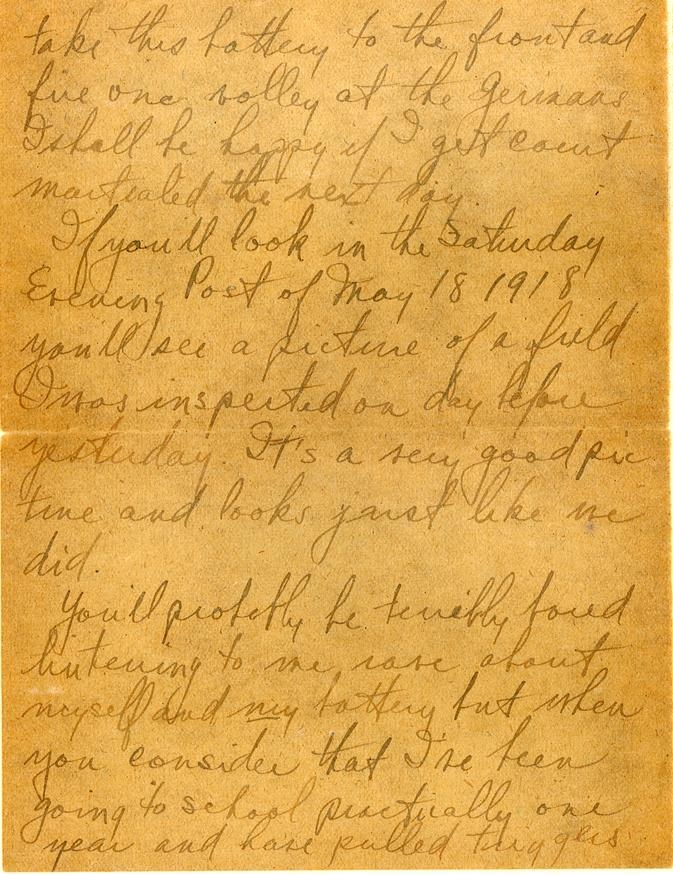 take this battery to the front and
fire one volley at the Germans
I shall be happy if I get court
martialed the next day.
If you'll look in the Saturday
Evening Post of May 18 1918
you'll see a picture of a field
I was inspected on day before
yesterday. It's a very good pic
ture and looks just like we
did.
You'll probably be terribly bored
listening to me rave about
myself and my battery but when
you consider that I've been
going to school practically one
year and have pulled triggers